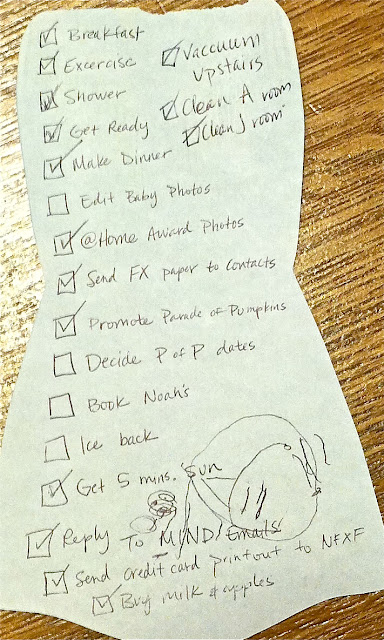 Breakfast
Excercise
Shower
Get Ready
Make Dinner
Vaccuum
upstairs
Clean A room
Clean J room
Edit Baby Photos
@Home Award Photos
Send FX paper to Contacts
Promote Parade of Pumpkins
Decide P of P dates
Book Noah's
Ice back
Get 5 mins. Sun
Reply To MIND/Emails
Send credit card printout to NFXF
Buy milk & apples